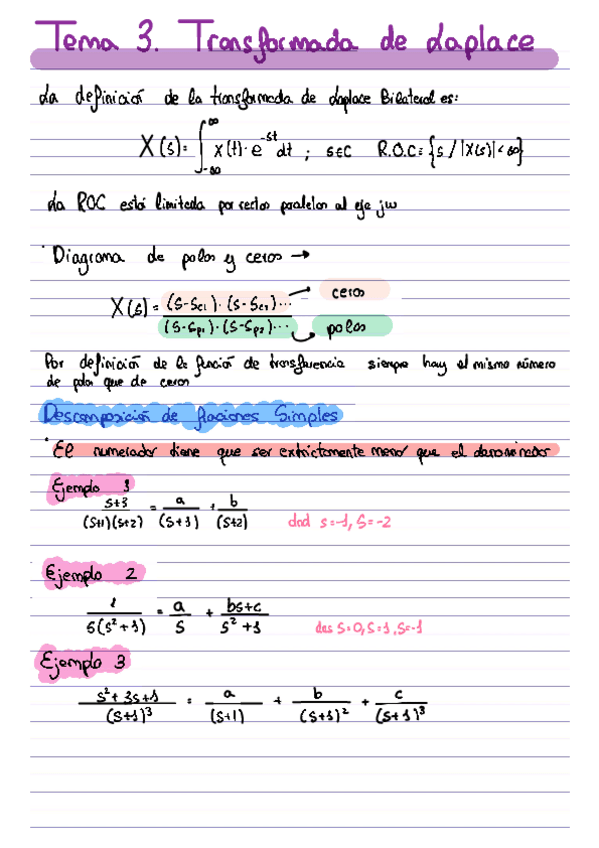 Tema 3. Transformada de Laplace
La definición de la transformada de Laplace Bilateral es:
X(s) = ∫_{-∞}^{∞} x(t)·e^{-st} dt ; s∈C R.O.C = {s / |X(s)| < ∞}
La ROC está limitada por rectas paralelas al eje jw
· Diagrama de polos y ceros →
X(s) = (s-s_{c1})·(s-s_{c2})... / (s-s_{p1})·(s-s_{p2})...
ceros
polos
Por definición de la función de transferencia siempre hay el mismo número
de polos que de ceros
Descomposición de fraciones Simples
· El numerador tiene que ser extrictamente menor que el denominador
Ejemplo 1
s+3 / (s+1)(s+2) = a / (s+1) + b / (s+2) dnd s=-1, s=-2
Ejemplo 2
1 / s(s²+1) = a / s + bs+c / s²+1 des s=0, s=1, s=-1
Ejemplo 3
s²+3s+1 / (s+1)³ = a / (s+1) + b / (s+1)² + c / (s+1)³